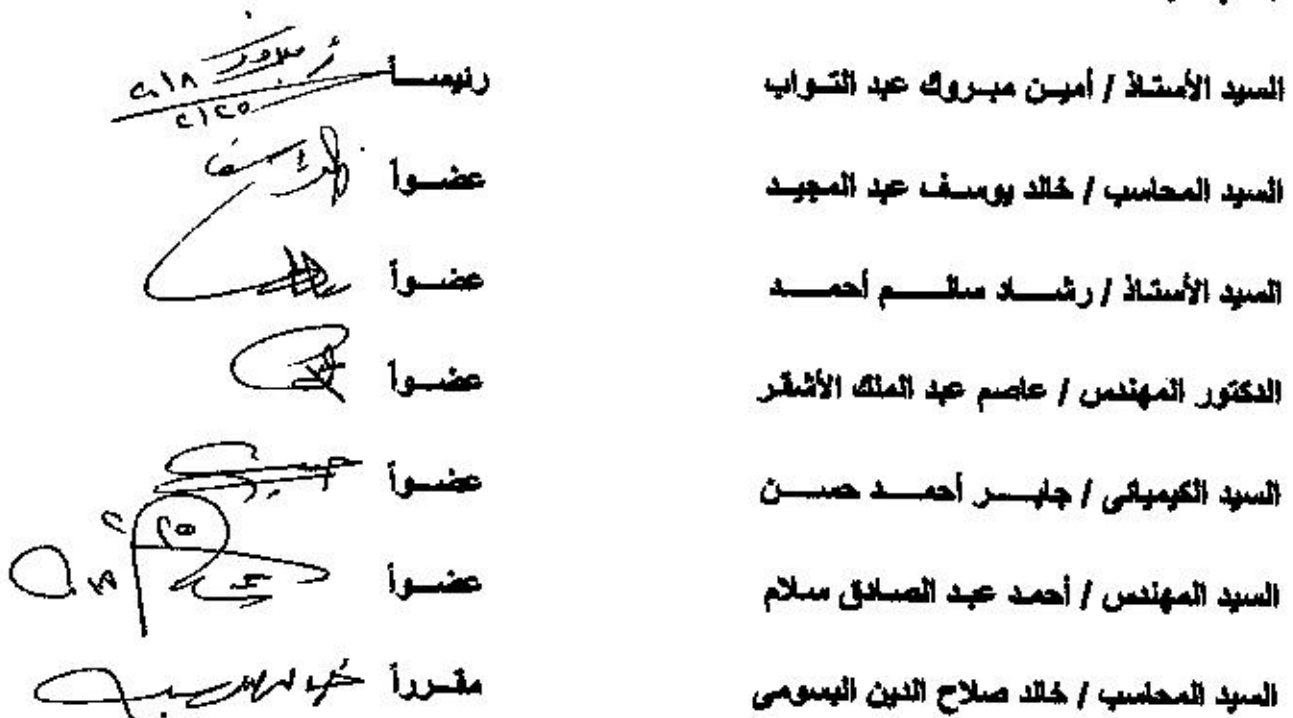 السيد الأستاذ / أمين مبروك عبد التواب رئيساً
السيد المحاسب / خالد يوسف عبد المجيد عضواً
السيد الأستاذ / رشاد سالم أحمد عضواً
الدكتور المهندس / عاصم عبد الملك الأشقر عضواً
السيد الكيميائى / جابر أحمد حسن عضواً
السيد المهندس / أحمد عبد الصادق سلام عضواً
السيد المحاسب / خالد صلاح الدين البسومى مقرراً